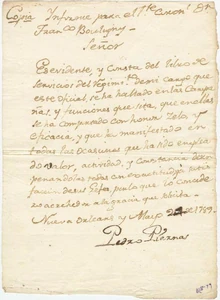 Copia Informe para el Tte Coronl Dn
Franco Bouligny
Señor
Es evidente, y Consta del libro de
servicios del Regimto de mi cargo que
este oficial, se ha hallado en las Campa
ñas, y funciones que sita, que en ellas
se ha comportado con honor Zelo, y
eficacia, y que ha manifestado en
todas las ocasiones que ha sido emplea
do valor, actividad, y Constancia
desem
peñando las todas con
satis
facion de sus Gefes, por lo que lo concide
ro acrehedor a la gracia que solicita.
Nueva Orleans y Mayo 2 de 1789
Pedro Piernas